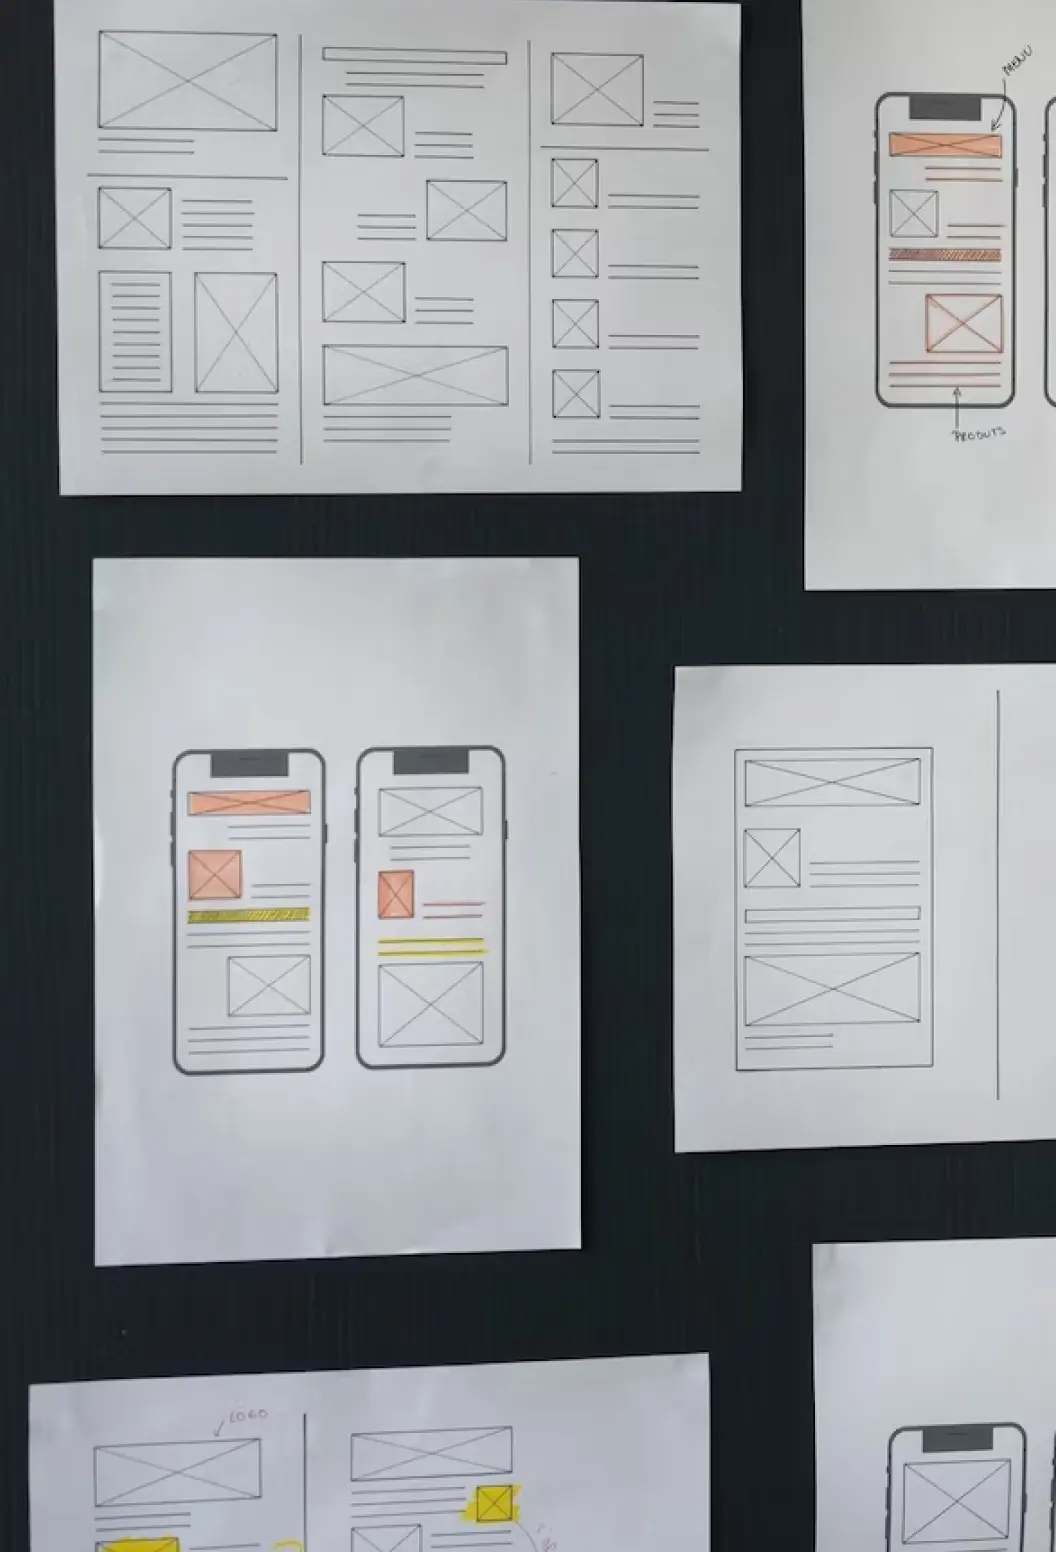 MENU
PRODUTS
LOGO